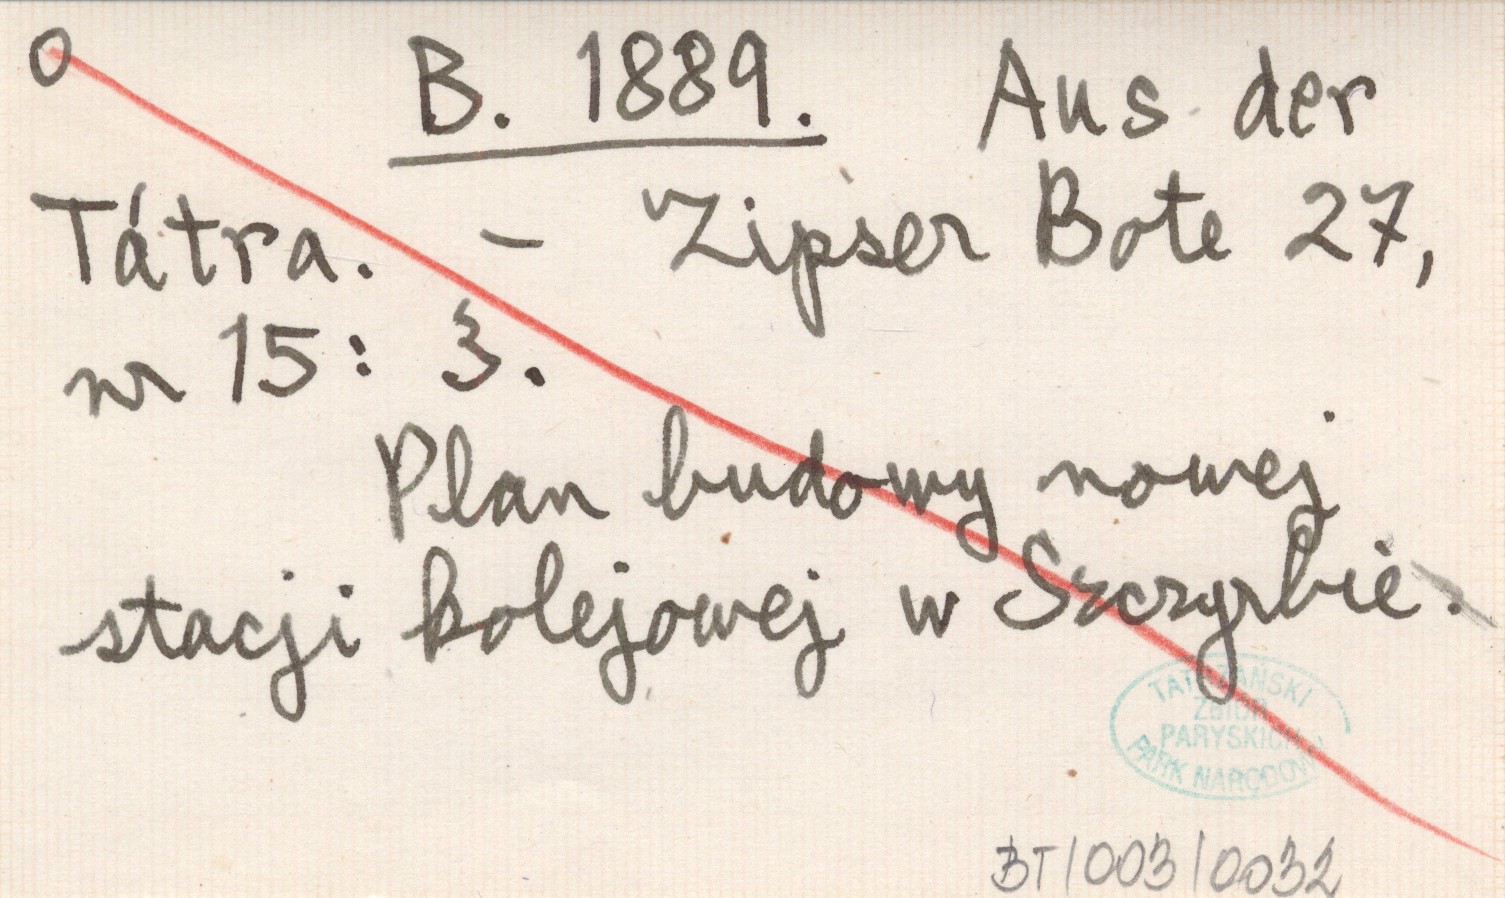 O B. 1889. Aus der
Tátra. – Zipser Bote 27,
nr 15: 3.
Plan budowy nowej
stacji kolejowej w Szczyrbie.
TATRZAŃSKI
ZBIÓR
PARYSKICH
PARK NARODOWY
BT/003/0032